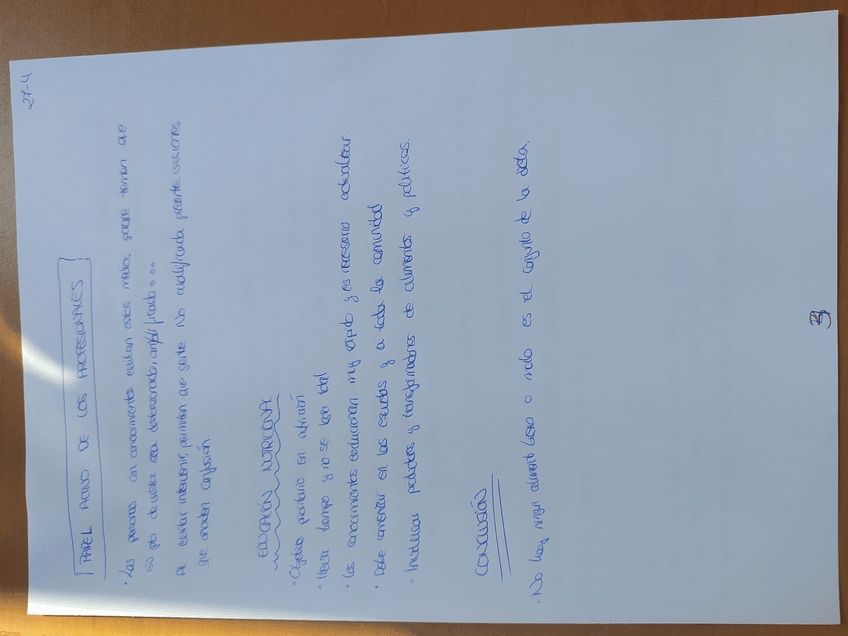 27-4
PAPEL ACTIVO DE LOS PROFESIONALES
· Las personas con conocimientos evitan estos medios, porque temen que
su pto de vista sea distorsionado, simplificado...
Al evitar intervenir, permiten que gente No cualificada presente visiones
que añaden confusión
EDUCACIÓN NUTRICIONAL
· Objetivo prioritario en nutrición
· Lleva tiempo y no se logra total
· Los conocimientos evolucionan muy rápido y es necesario actualizar.
· Debe comenzar en las escuelas y a toda la comunidad
· Involucrar productores y transformadores de alimentos y políticos.
CONCLUSIÓN
· No hay ningún alimento bueno o malo es el conjunto de la dieta.